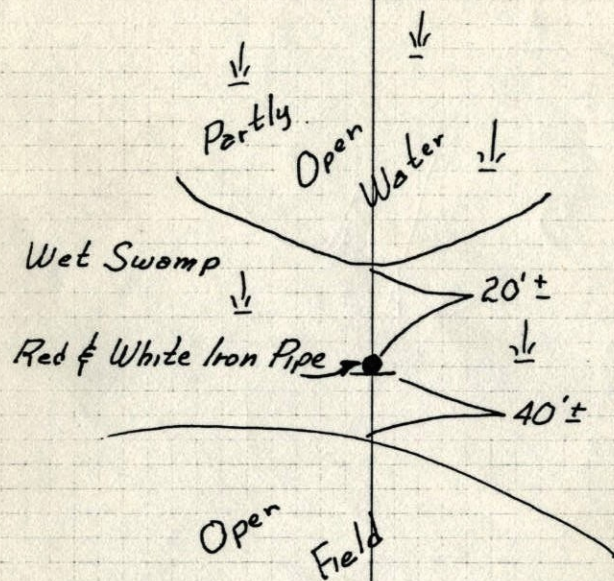 Partly
Open
Water
Wet Swamp
20' ±
Red & White Iron Pipe
40' ±
Open
Field